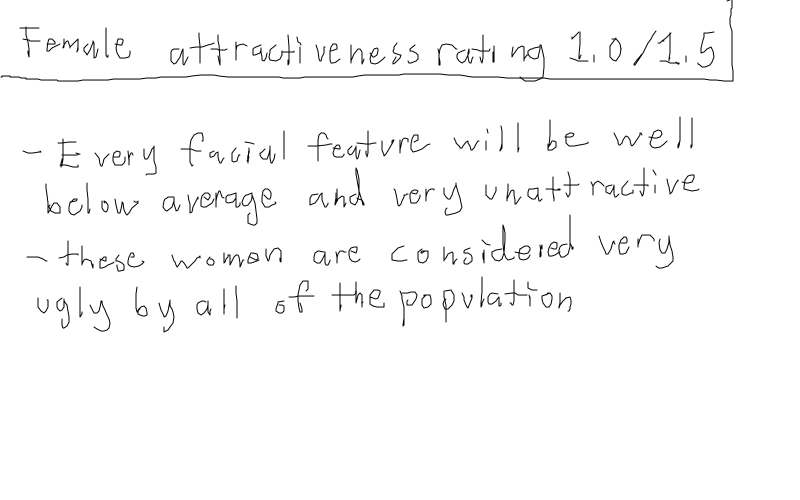 Female attractiveness rating 1.0/1.5
- Every facial feature will be well
below average and very unattractive
- these women are considered very
ugly by all of the population